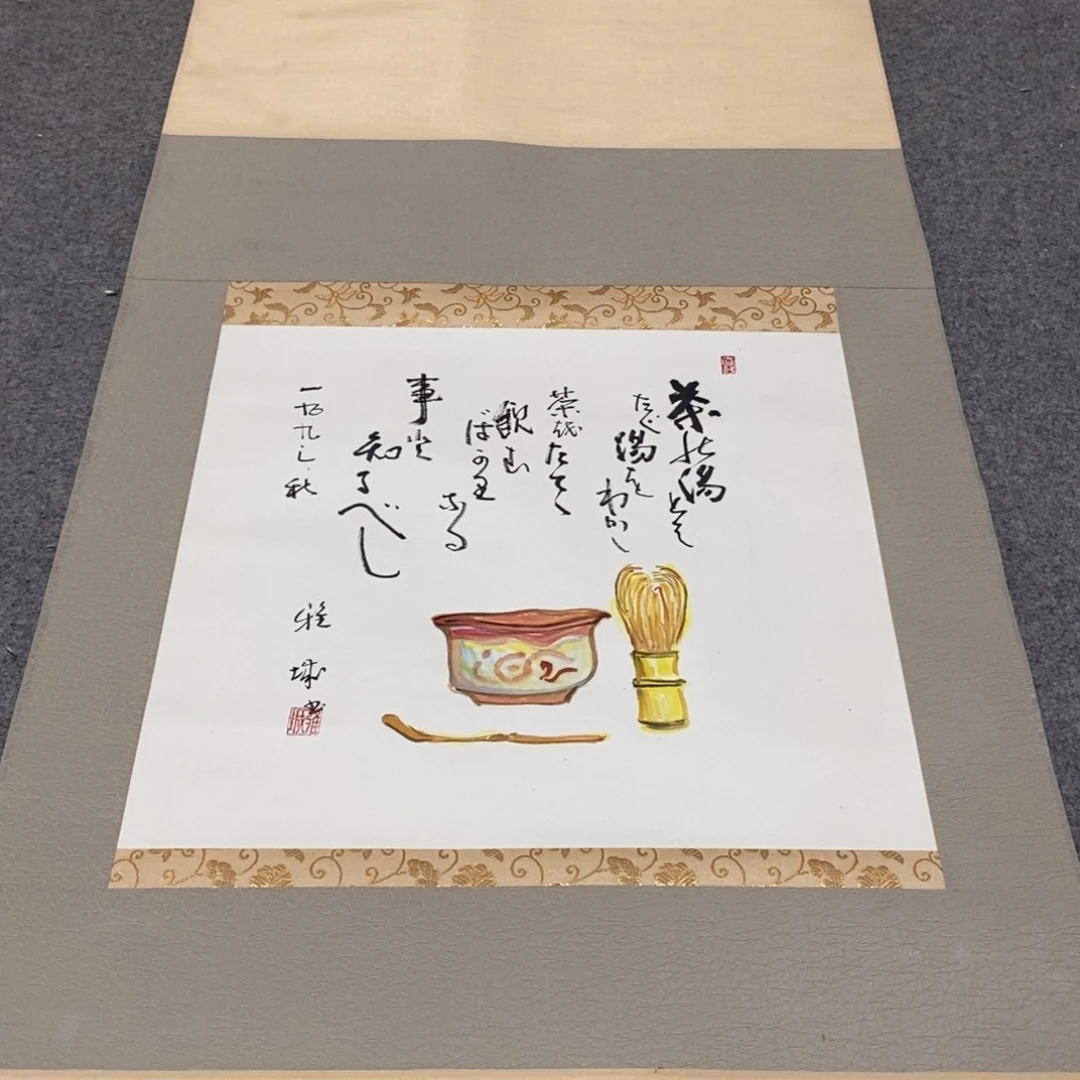 茶の湯とは
たゞ湯を
わかし
茶をたてゝ
飲む
ばかり
なる
事と
知る
べし
一九九七・秋
雅城書
雅城